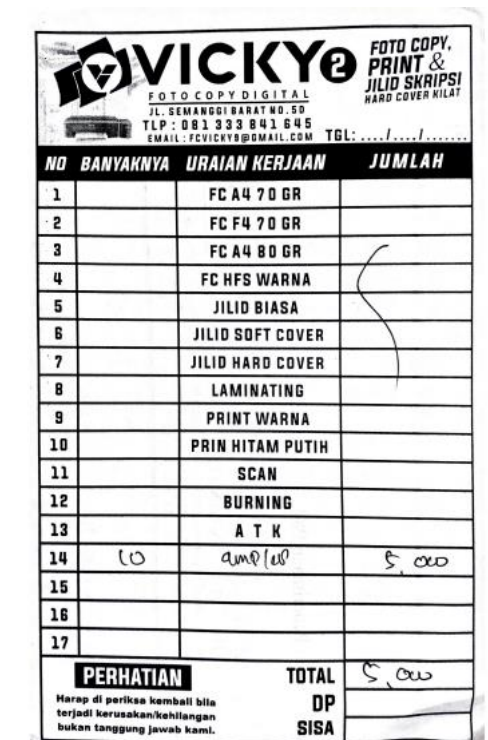 VICKY 2
FOTO COPY DIGITAL
JL. SEMANGGI BARAT NO.50
TLP : 081 333 841 645
EMAIL : FCVICKY9@GMAIL.COM
FOTO COPY,
PRINT &
JILID SKRIPSI
HARD COVER KILAT
TGL: ..../..../.......
NO BANYAKNYA URAIAN KERJAAN JUMLAH
1 FC A4 70 GR
2 FC F4 70 GR
3 FC A4 80 GR
4 FC HFS WARNA
5 JILID BIASA
6 JILID SOFT COVER
7 JILID HARD COVER
8 LAMINATING
9 PRINT WARNA
10 PRIN HITAM PUTIH
11 SCAN
12 BURNING
13 A T K
14 10 amplop 5.000
15
16
17
PERHATIAN
Harap di periksa kembali bila
terjadi kerusakan/kehilangan
bukan tanggung jawab kami.
TOTAL 5.000
DP
SISA